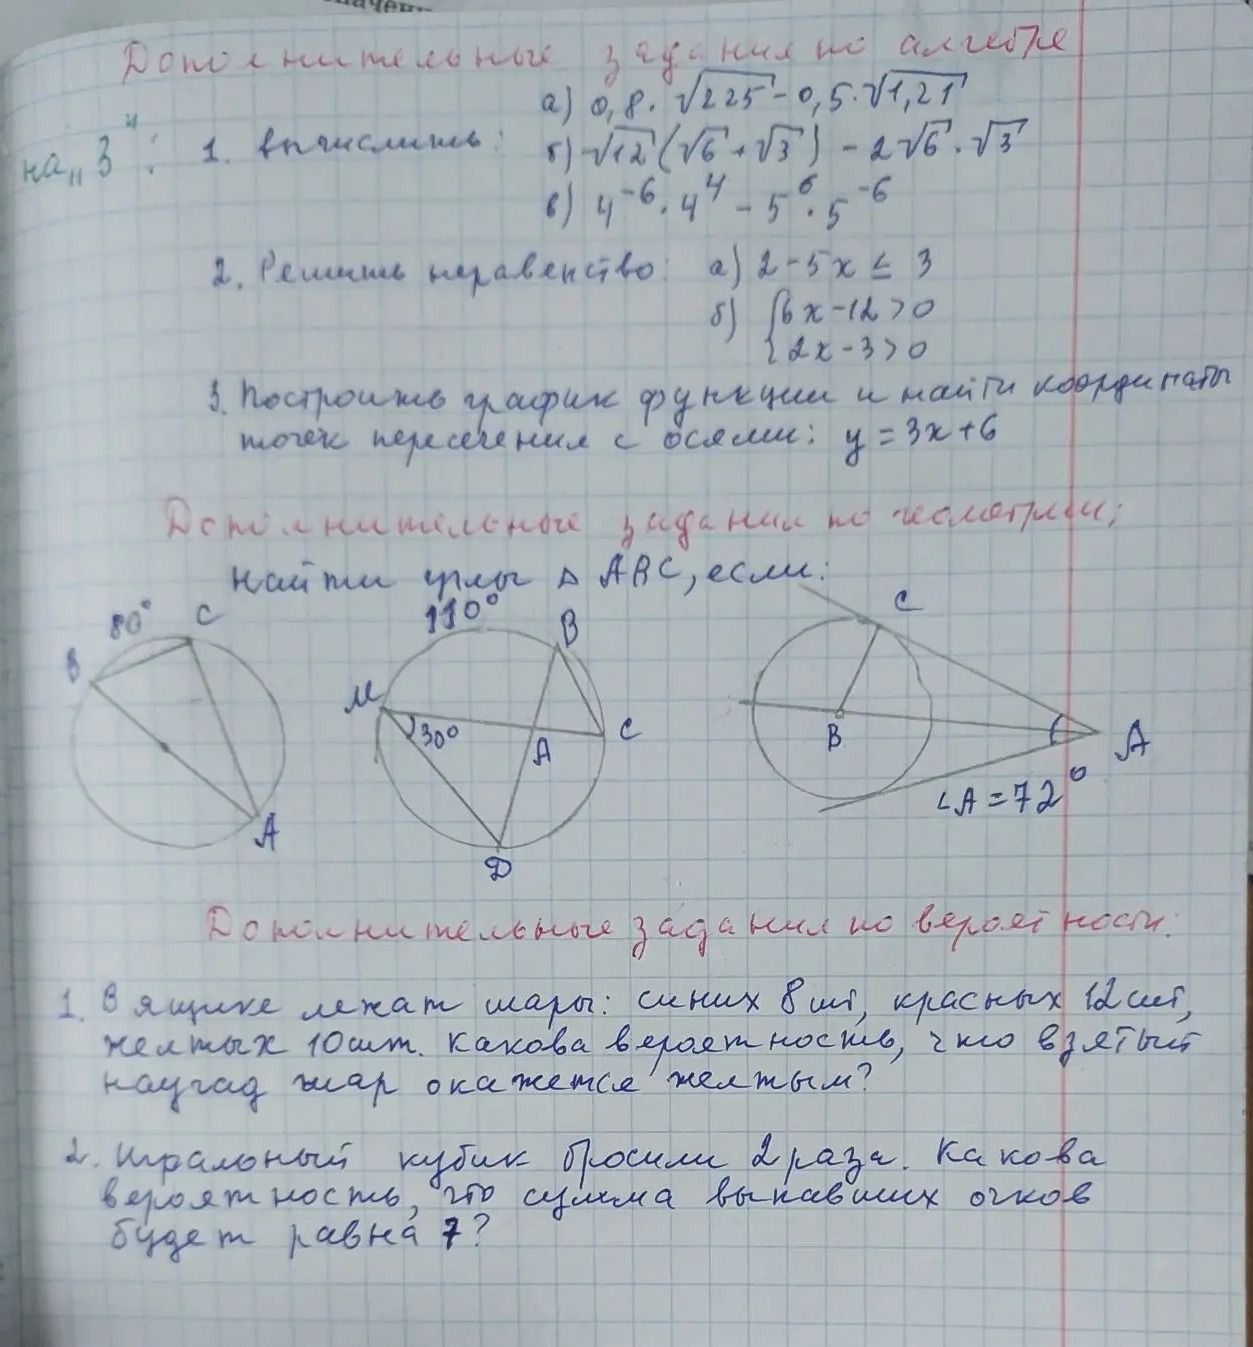 Дополнительные задания по алгебре
на "3":
1. Вычислить: а) 0,8·√225 - 0,5·√1,21
б) √12(√6+√3) - 2√6·√3
в) 4⁻⁶·4⁴ - 5⁶·5⁻⁶
2. Решить неравенство: а) 2-5x ≤ 3
б) {6x-12>0
{2x-3>0
3. Построить график функции и найти координаты
точек пересечения с осями: y=3x+6
Дополнительные задания по геометрии:
Найти углы △ ABC, если:
80° C B A
110° B M 30° A C D
C B A ∠A=72°
Дополнительные задания по вероятности:
1. В ящике лежат шары: синих 8шт, красных 12шт,
желтых 10шт. Какова вероятность, что взятый
наугад шар окажется желтым?
2. Игральный кубик бросили 2 раза. Какова
вероятность, что сумма выпавших очков
будет равна 7?